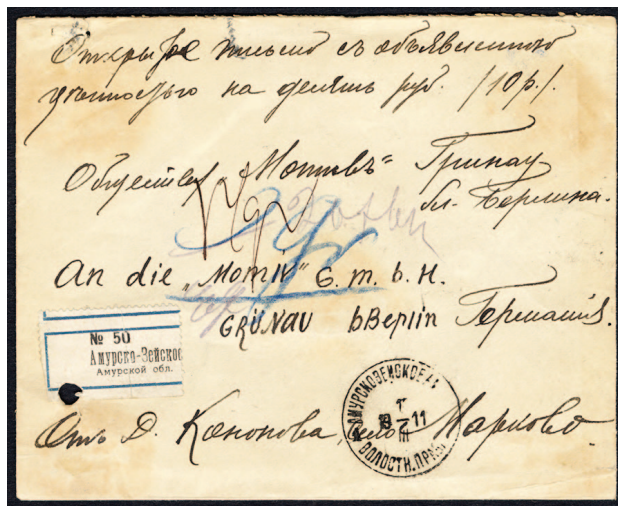 Открытое письмо съ объявленною
цѣнностью на десять руб. /10р./.
Общество „Мотивъ“ Гринау
бл. Берлина.
An die „Momiv“ G. m. b. H.
GRÜNAU bBerlin Германія.
№ 50
Амурско-Зейское
Амурской обл.
АМУРСКОЗЕЙСКОЕ
19 III 11
ВОЛОСТН. ПРАВ.
Отъ Д. Кононова, село Марково.